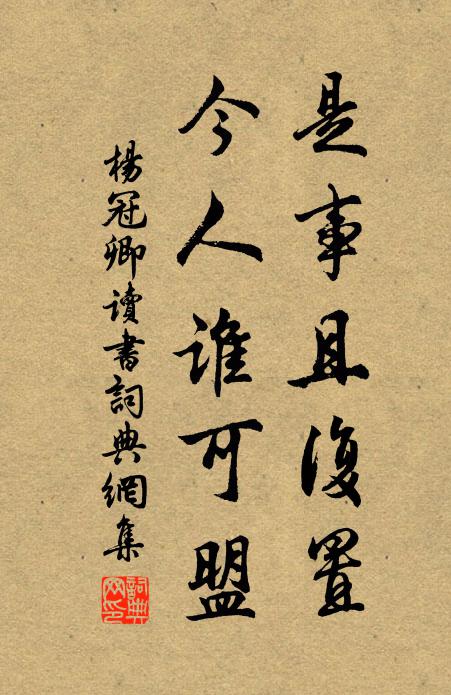 是事且復置
今人誰可盟
楊冠卿讀書詞典網集
詞典网印